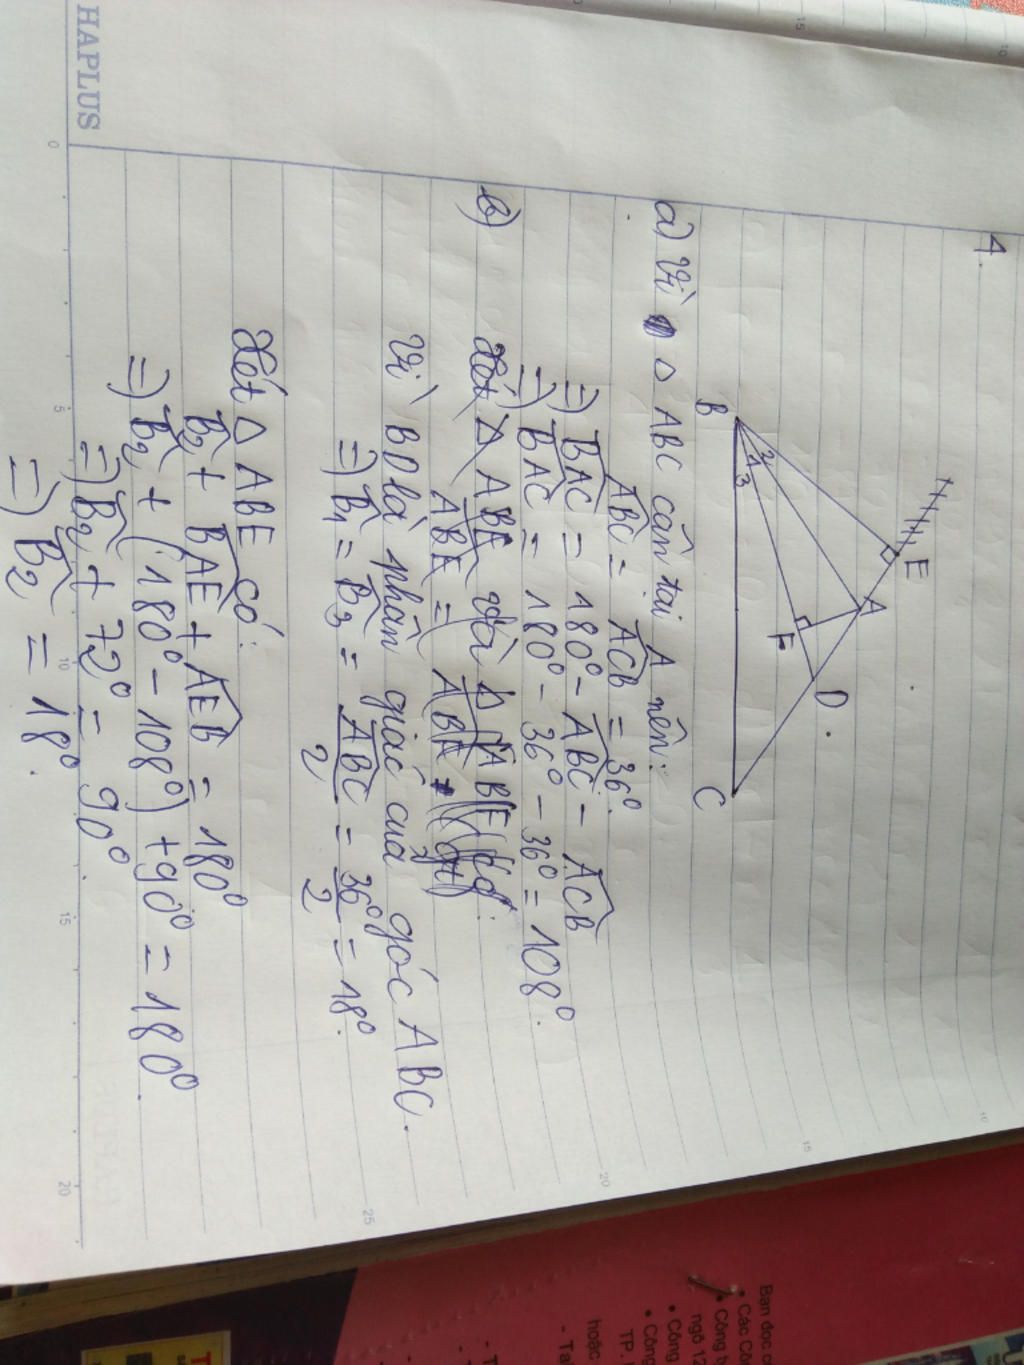 HAPLUS
4.
E
A
D
F
B
C
2
1
3
a) Vì △ ABC cân tại A nên:
ABC = ACB = 36°.
=> BAC = 180° - ABC - ACB
=> BAC = 180° - 36° - 36° = 108°.
b) Xét △ ABE và △ ABF có:
Vì BD là phân giác của góc ABC.
=> B₁ = B₃ = ABC/2 = 36°/2 = 18°.
Xét △ ABE có:
B₂ + BAE + AEB = 180°
=> B₂ + (180° - 108°) + 90° = 180°.
=> B₂ + 72° = 90°.
=> B₂ = 18°.
0
5
10
15
20
15
20
25
Bạn đọc
• Các Côn
• Công t
ngõ 12
• Công
• Côn
TP.
hoặc
- Ta